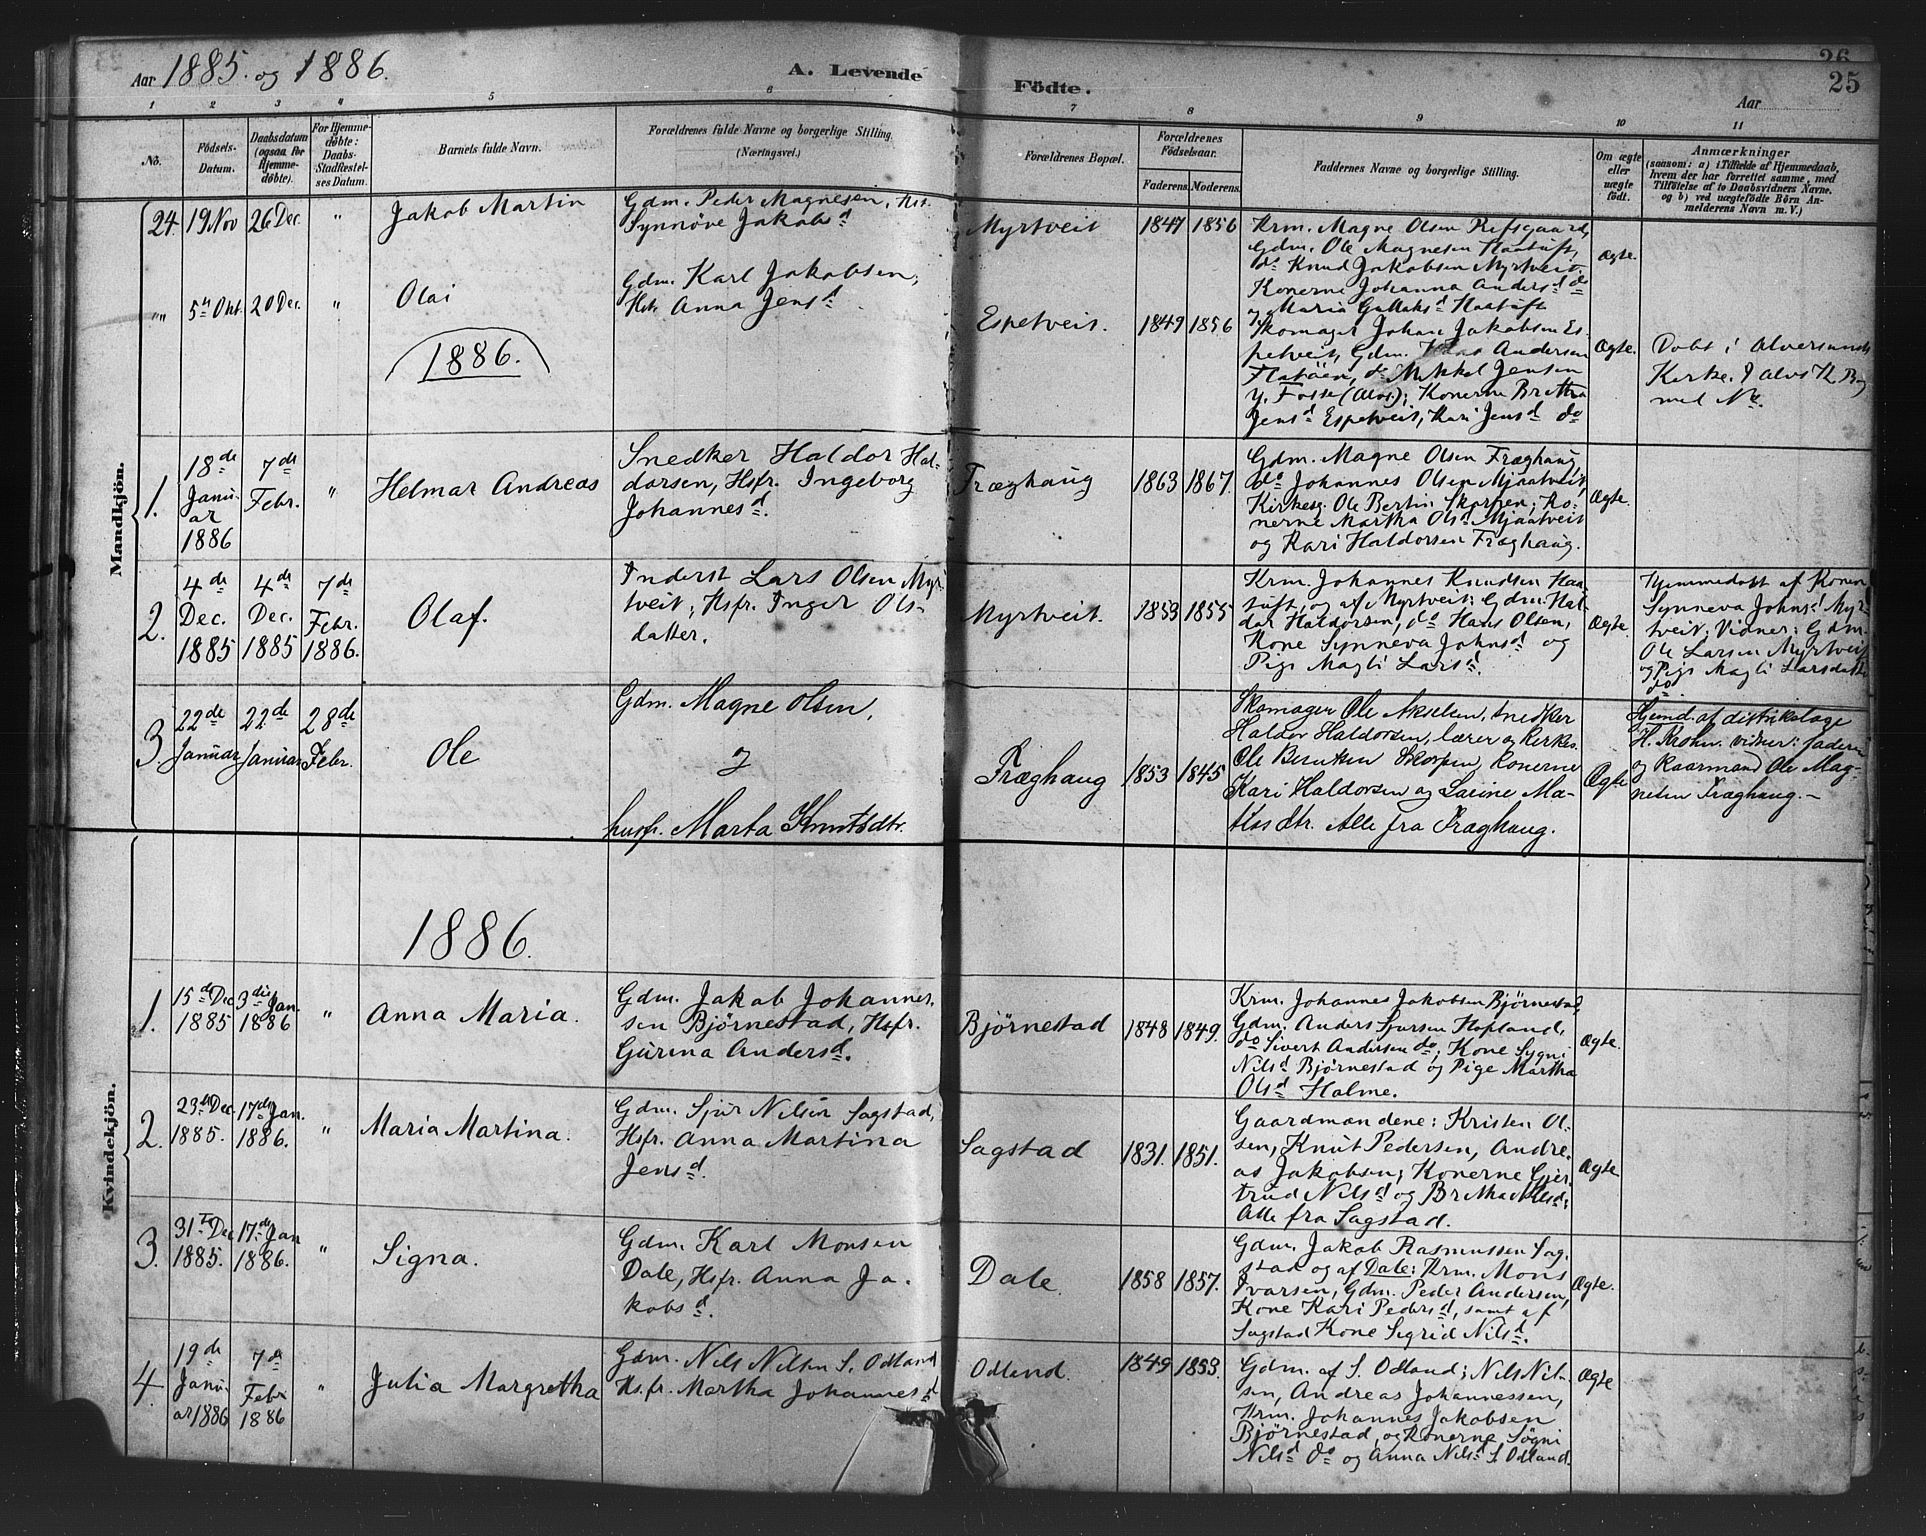 Aar 1885. og 1886.
A. Levende Födte.
26
25
Aar
1 2 3 4 5 6 7 8 9 10 11
No.
Födsels-
Datum.
Daabsdatum
(ogsaa for
Hjemme-
döbte).
For Hjemme-
döbte:
Daabs-
Stadfæstel-
ses Datum.
Barnets fulde Navn.
Forældrenes fulde Navne og borgerlige Stilling.
(Næringsvei.)
Forældrenes Bopæl.
Forældrenes
Födselsaar.
Faderens. Moderens.
Faddernes Navne og borgerlige Stilling.
Om ægte
eller
uægte
födt.
Anmærkninger
(saasom: a) i Tilfælde af Hjemmedaab,
hvem der har forrettet samme, med
Tilföielse af to Daabsvidners Navne.
og b) ved uægtefödte Börn An-
melderens Navn m. V.)
Mandkjön.
24. 19 Nov 26 Dec. " Jakob Martin
Gdm. Peder Magnesen, Hst.
Synnöve Jakobsd
Myrtveit 1847 1856
Krm. Magne Olsen Refsgaard,
Gdm. Ole Magnesen Haatuft,
do Knud Jakobsen Myrtveit.
Konerne Johanna Andersd do
Maria Haatuft
Ægte.
" 5te Okt. 20 Dec. " Olai
Gdm. Karl Jakobsen,
Hst. Anna Jensd.
Espetveit. 1849 1856
Skomager Johan Jakobsen Es-
petveit, Gdm. Andersen
Flatöen, do Mikkel Jensen
y. Fosse (Alos); Konerne Britha
Jensd Espetveit, Kari Jensd do
Ægte.
Döbt i Alversunds
Kirke.
med No.
1886.
1. 18de Janu-
ar
1886
7de
Febr.
" Helmar Andreas
Snedker Haldor Hal-
dorsen, Hsfr. Ingeborg
Johannesd.
Fræghaug 1863 1867.
Gdm. Magne Olsen Fræghaug,
do Johannes Olsen Mjaatveit,
Kirkesg. Ole Bertin Skorpen; Ko-
nerne Martha Olsd Mjaatveit
og Kari Haldorsen Fræghaug.
Ægte.
2. 4de
Dec.
1885
4de
Dec.
1885
7de
Febr.
1886.
Olaf.
Inderst Lars Olsen Myr-
tveit, Hsfr. Inger Ols-
datter.
Myrtveit. 1853 1855
Krm. Johannes Knudsen Haa-
tuft, og af Myrtveit: Gdm. Hal-
dor Haldorsen, do Hans Olsen,
Kone Synneva Johnsd og
Pige Magli Larsd.
Ægte.
Hjemmedöbt af Konen
Synneva Johnsd Myr-
tveit; Vidner: Gdm.
Ole Larsen Myrtveit
og Pige Magli Larsdatter
do
3. 22de
Januar
22de
Januar
28de
Febr.
Ole
Gdm. Magne Olsen,
&
husfr. Marta Knutsdtr.
Fræghaug 1853 1845
Skomager Ole Akselsen, snedker
Haldor Haldorsen, lærer og kirkes.
Ole Skorpen, Konerne
Kari Haldorsen og Larine Ma-
tias dtr. Alle fra Fræghaug.
Ægte
Hjemd. af distriktslæge
H. Krohn. vidner: faderen
og Kaarmand Ole Mag-
nesen Fræghaug.-
Kvindekjön.
1886.
1. 15de Dec
1885
3die Jan.
1886
" Anna Maria.
Gdm. Jakob Johannes-
sen Björnestad, Hsfr.
Gurina Andersd.
Björnestad 1848 1849.
Krm. Johannes Jakobsen Björnestad,
Gdm. Anders Sjursen Hopland,
do Sivert Andersen do; Kone Sygni
Nilsd Björnestad og Pige Martha
Olsd Holme.
Ægte.
2. 23de Dec.
1885.
17de Jan.
1886.
" Maria Martina.
Gdm. Sjur Nilsen Sagstad,
Hsfr. Anna Martina
Jensd.
Sagstad 1831. 1851.
Gaardmændene: Kristen Ol-
sen, Knut Pedersen, Andre-
as Jakobsen; Konerne Gjer-
trud Nilsd og Britha Nilsd;
Alle fra Sagstad.
Ægte
3. 31te Dec
1885.
17de Jan
1886.
" Signa.
Gdm. Karl Monsen
Dale, Hsfr. Anna Ja-
kobsd.
Dale. 1858 1857.
Gdm. Jakob Rasmussen Sag-
stad og af Dale: Krm. Mons
Ivarsen, Gdm. Peder Andersen,
Kone Kari Pedersd, samt af
Sagstad Kone Sigrid Nilsd.
Ægte.
4. 19de
Janu-
ar 1886
7de
Febr
1886
" Julia Margretha
Gdm. Nils Nilsen S. Odland
Hsfr. Martha Johannesd
Odland. 1849 1853.
Gdm. af S. Odland; Nils Nil-
sen, Andreas Johannessen,
Krm. Johannes Jakobsen
Björnestad, og Konerne Sögni
Nilsd do og Anna Nilsd S. Odland.
Ægte